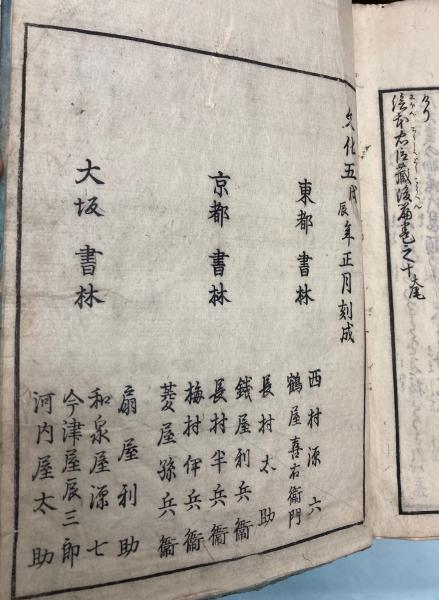 絵本忠臣蔵後篇巻之十大尾
文化五戊辰年正月刻成
東都 書林
西村源六
鶴屋喜右衛門
京都 書林
長村太助
銭屋利兵衞
長村半兵衞
梅村伊兵衞
菱屋孫兵衞
大坂 書林
扇屋利助
和泉屋源七
今津屋辰三郎
河内屋太助